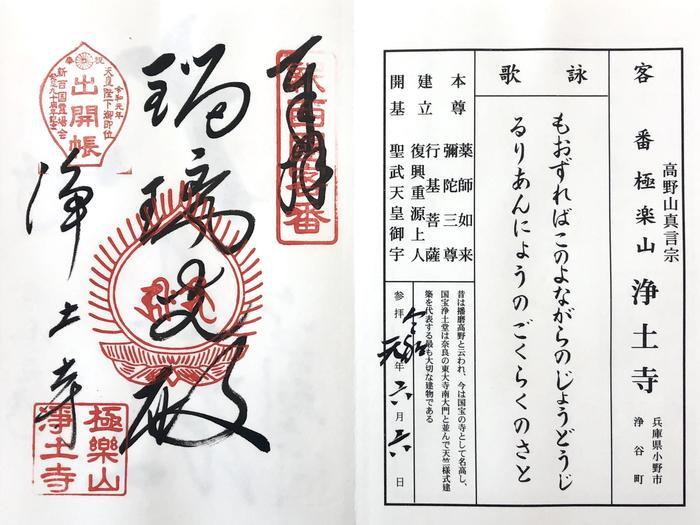 高野山真言宗
客番 極楽山 浄土寺
兵庫県小野市
浄谷町
詠歌
もおずればこのよながらのじょうどうじ
るりあんにょうのごくらくのさと
本尊 薬師如来
彌陀三尊
建立 行基菩薩
復興重源上人
開基 聖武天皇御宇
昔は播磨高野と云われ、今は国宝の寺として名高し、
国宝浄土堂は奈良の東大寺南大門と並んで天竺様式建
築を代表する最も大切な建物である
参拝 令和元年六月六日
奉拝
瑠璃
殿
浄土寺
奉祝
令和元年
天皇陛下御即位
出開帳
新西国霊場会
極樂山
浄土寺